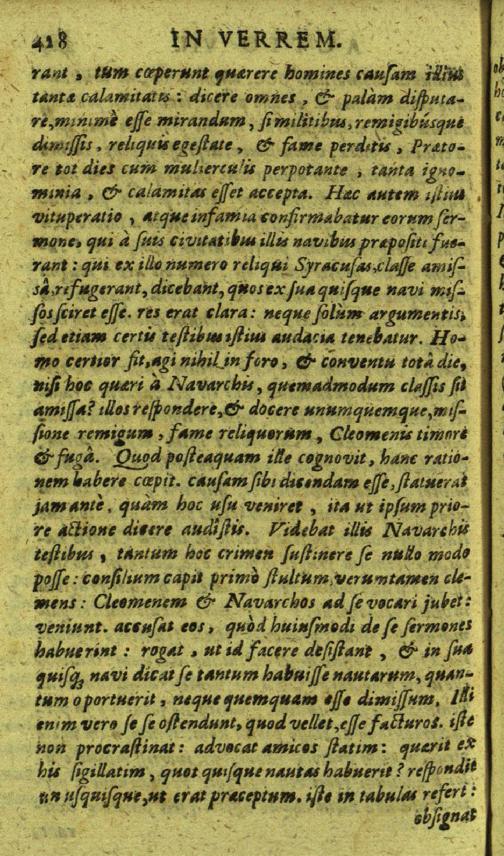 418 IN VERREM.
rant, tùm cœperunt quærere homines causam illius
tantæ calamitatis: dicere omnes, & palàm disputa-
re, minimè esse mirandum, si militibus, remigibúsque
dimissis, reliquis egestate, & fame perditis, Præto-
re tot dies cum mulierculis perpotante, tanta igno-
minia, & calamitas esset accepta. Hæc autem istius
vituperatio, atque infamia confirmabatur eorum ser-
mone, qui à suis civitatibus illis navibus præpositi fue-
rant: qui ex illo numero reliqui Syracusas, classe amis-
sâ, refugerant, dicebant, quos ex sua quisque navi mis-
sos sciret esse. res erat clara: neque solùm argumentis,
sed etiam certis testibus istius audacia tenebatur. Ho-
mo certior fit, agi nihil in foro, & conventu totâ die,
nisi hoc quæri à Navarchis, quemadmodum classis sit
amissa? illos respondere, & docere unumquemque, mis-
sione remigum, fame reliquorum, Cleomenis timore
& fugâ. Quod posteaquam iste cognovit, hanc ratio-
nem habere cœpit. causam sibi dicendam esse, statuerat
jam antè, quàm hoc usu veniret, ita ut ipsum prio-
re actione dicere audîstis. Videbat illis Navarchis
testibus, tantum hoc crimen sustinere se nullo modo
posse: consilium capit primò stultum, verumtamen cle-
mens: Cleomenem & Navarchos ad se vocari jubet:
veniunt. accusat eos, quòd huiusmodi de se sermones
habuerint: rogat, ut id facere desistant, & in sua
quisq; navi dicat se tantum habuisse nautarum, quan-
tum oportuerit, neque quemquam esse dimissum. Illi
enim vero se se ostendunt, quod vellet, esse facturos. iste
non procrastinat: advocat amicos statim: quærit ex
his sigillatim, quot quisque nautas habuerit? respondit
unusquisque, ut erat præceptum. iste in tabulas refert:
obsignat